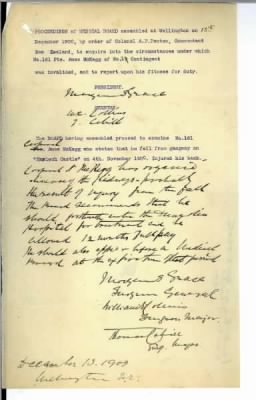 PROCEEDINGS OF MEDICAL BOARD assembled at Wellington on 13th
December 1900, by order of Colonel A.P.Penton, Commandant
New Zealand, to enquire into the circumstances under which
No.161 Pte. Anse McKegg of No.1 Contingent
was invalided, and to report upon his fitness for duty.
PRESIDENT.
Morgan S Grace
MEMBERS
W Collins
T. Cahill
The BOARD having assembled proceed to examine No.161
Corporal Anse McKegg who states that he fell from gangway on
"Harlech Castle" on 4th. November 1899. Injured his back.
Corporal A McKegg has organic
disease of the kidneys - probably
the result of injury from the fall
The Board recommends that he
should enter the
Hospital for treatment and be
allowed 12 months full pay
He should also appear before a Medical
Board at the expiration of that period
Morgan S Grace
Surgeon General
William Collins
Surgeon Major
Thomas Cahill
Surg. Major
December 13. 1900
Wellington N.Z.